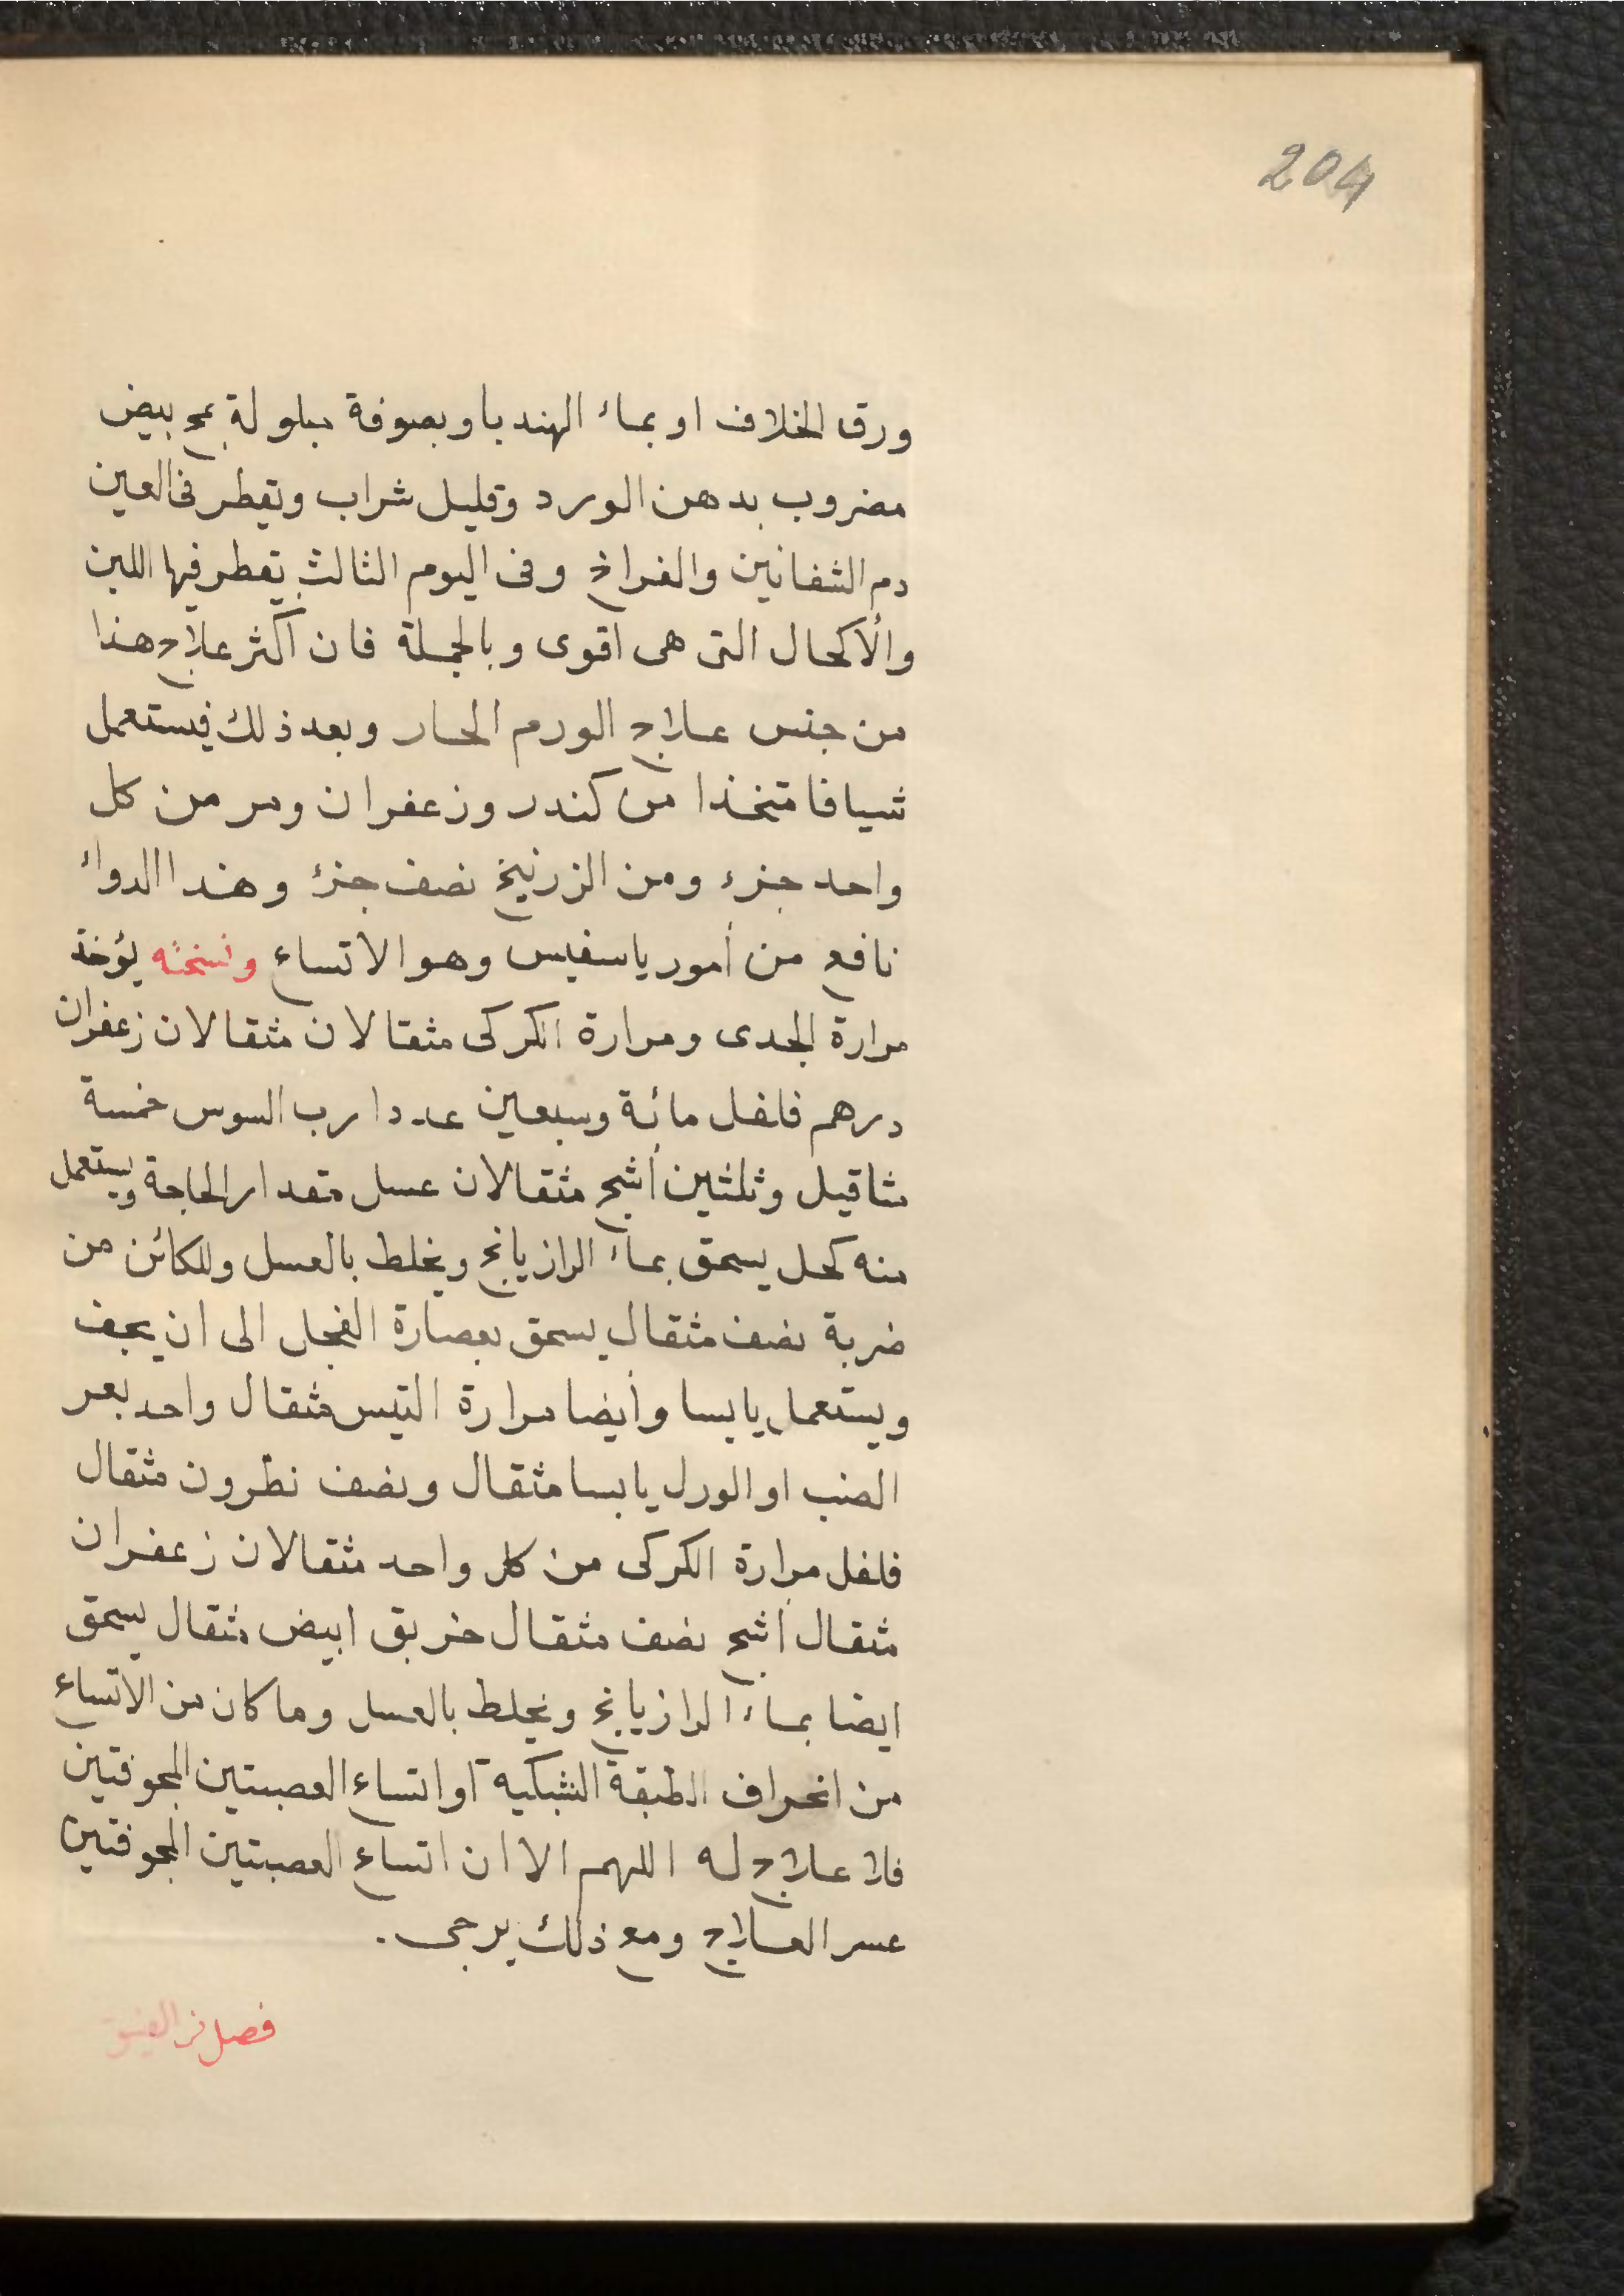 204
ورق الخلاف او بماء الهندبا وبصوفة مبلولة بمح بيض
مضروب بدهن الورد وقليل شراب وتقطر فى العين
دم الشفانين والفراخ وفى اليوم الثالث يقطر فيها اللبن
والأكحال التى هى اقوى وبالجملة فان اكثر علاج هذا
من جنس علاج الورم الحار وبعد ذلك فيستعمل
شيافا متخذا من كندر وزعفران ومر من كل
واحد جزء ومن الزرنيخ نصف جزء وهذا الدواء
نافع من أمورياسفيس وهو الاتساع ونسخته يؤخذ
مرارة الجدى ومرارة الكركى مثقالان مثقالان زعفران
درهم فلفل مائة وسبعين عددا رب السوس خمسة
مثاقيل وثلثين أشج مثقالان عسل مقدار الحاجة ويستعمل
منه كحل يسحق بماء الرازيانج ويخلط بالعسل وللكائن من
ضربة نصف مثقال يسحق بعصارة الفجل الى ان يجف
ويستعمل يابسا وأيضا مرارة التيس مثقال واحد بعر
الضب او الورل يابسا مثقال ونصف نطرون مثقال
فلفل مرارة الكركى من كل واحد مثقالان زعفران
مثقال أشج نصف مثقال خربق ابيض مثقال يسحق
ايضا بماء الرازيانج ويخلط بالعسل وما كان من الاتساع
من انحراف الطبقة الشبكية او اتساع العصبتين المجوفتين
فلا علاج له اللهم الا ان اتساع العصبتين المجوفتين
عسر العلاج ومع ذلك يرجى.
فصل فى الضيق